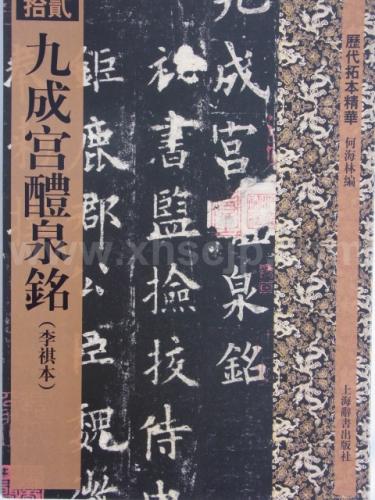 拾貳
九成宫醴泉銘
(李祺本)
歷代拓本精華
何海林編
上海辭書出版社
九成宫醴泉銘
祕書監撿挍侍中
鉅鹿郡公臣魏徵